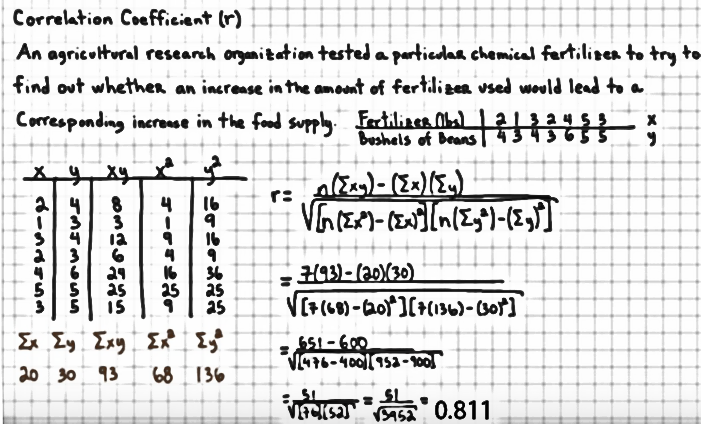 Correlation Coefficient (r)
An agricultural research organization tested a particular chemical fertilizer to try to
find out whether an increase in the amount of fertilizer used would lead to a
Corresponding increase in the food supply.
Fertilizer (lbs) | 2 1 3 2 4 5 3 x
Bushels of Beans | 4 3 4 3 6 5 5 y
x y xy x² y²
2 4 8 4 16
1 3 3 1 9
3 4 12 9 16
2 3 6 4 9
4 6 24 16 36
5 5 25 25 25
3 5 15 9 25
Σx Σy Σxy Σx² Σy²
20 30 93 68 136
r = n(Σxy) - (Σx)(Σy)
√[n(Σx²) - (Σx)²][n(Σy²) - (Σy)²]
= 7(93) - (20)(30)
√[7(68) - (20)²][7(136) - (30)²]
= 651 - 600
√[476 - 400][952 - 900]
= 51 / √[76][52] = 51 / √3952 = 0.811